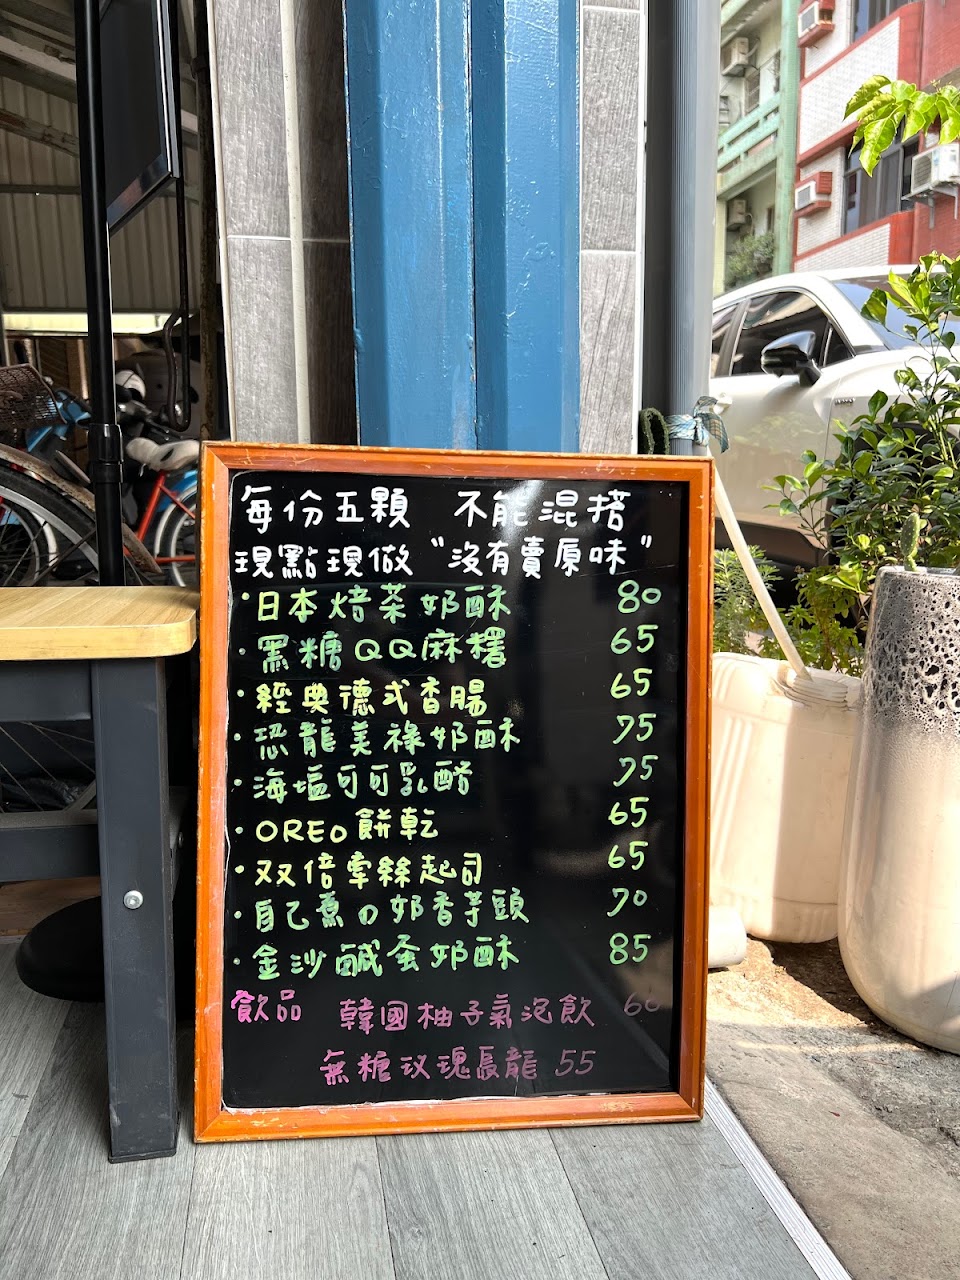 每份五顆 不能混搭
現點現做 "沒有賣原味"
·日本焙茶奶酥 80
·黑糖QQ麻糬 65
·經典德式香腸 65
·恐龍美祿奶酥 75
·海塩可可乳酪 75
·OREO餅乾 65
·双倍牽絲起司 65
·自己熏の奶香芋頭 70
·金沙鹹蛋奶酥 85
飲品 韓國柚子氣泡飲 60
無糖玫瑰烏龍 55